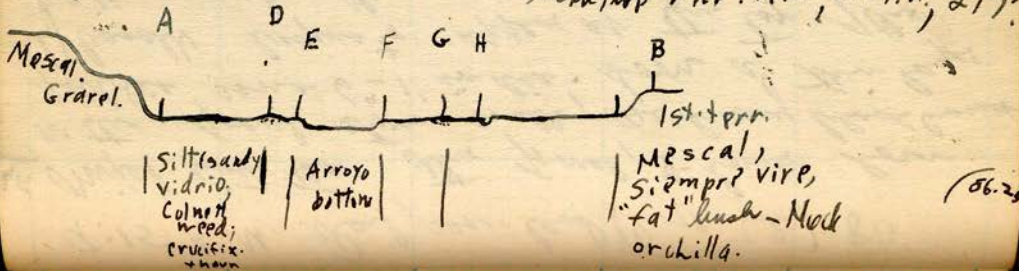 A D E F G H B
Mescal.
Gravel.
1st. terr.
Silt (sandy
vidrio,
Colnett
weed;
crucifix.
thorn
Arroyo
bottom
Mescal,
siempre vire,
"fat" bush - Much
orchilla.